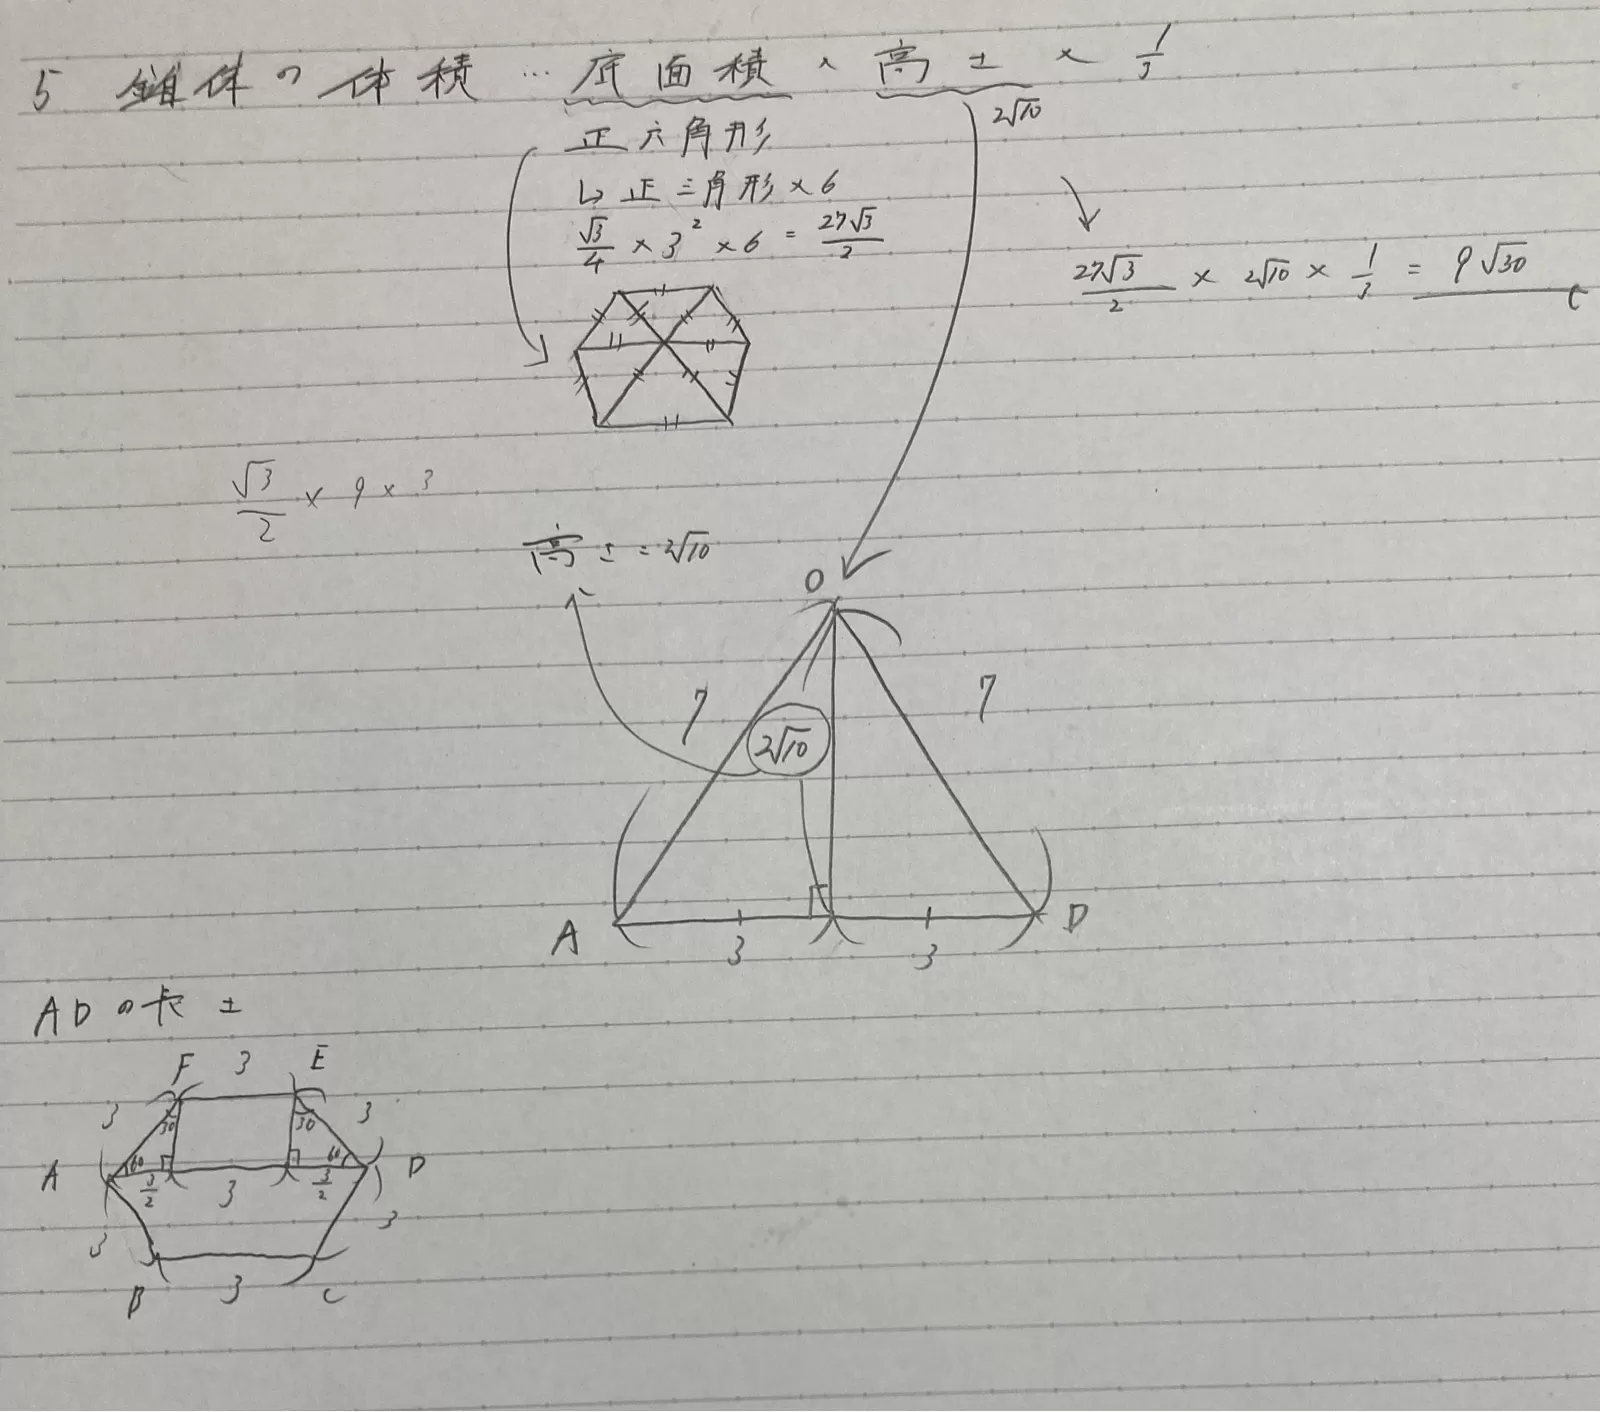 5 錐体の体積 … 底面積 × 高さ × 1/3
2√10
正六角形
↳ 正三角形 × 6
√3/4 × 3² × 6 = 27√3/2
27√3/2 × 2√10 × 1/3 = 9√30
√3/2 × 9 × 3
高さ = 2√10
O
7 7
2√10
A D
3 3
ADの長さ
F 3 E
3 3
30 30
A 60 60 D
3/2 3 3/2
3 3
B 3 C